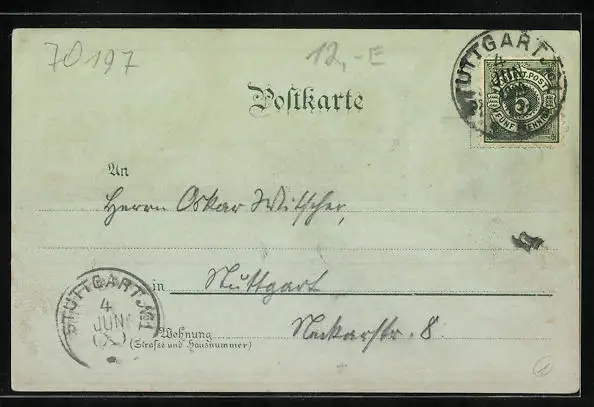 70197
12,-E
STUTTGART
4
JUN
POST
5
FÜNF PFENNIG
Postkarte
An
Herrn Oskar Witscher,
in Stuttgart
STUTTGART
4
JUN
(X)
Wohnung
(Strasse und Hausnummer)
Neckarstr. 8.
1